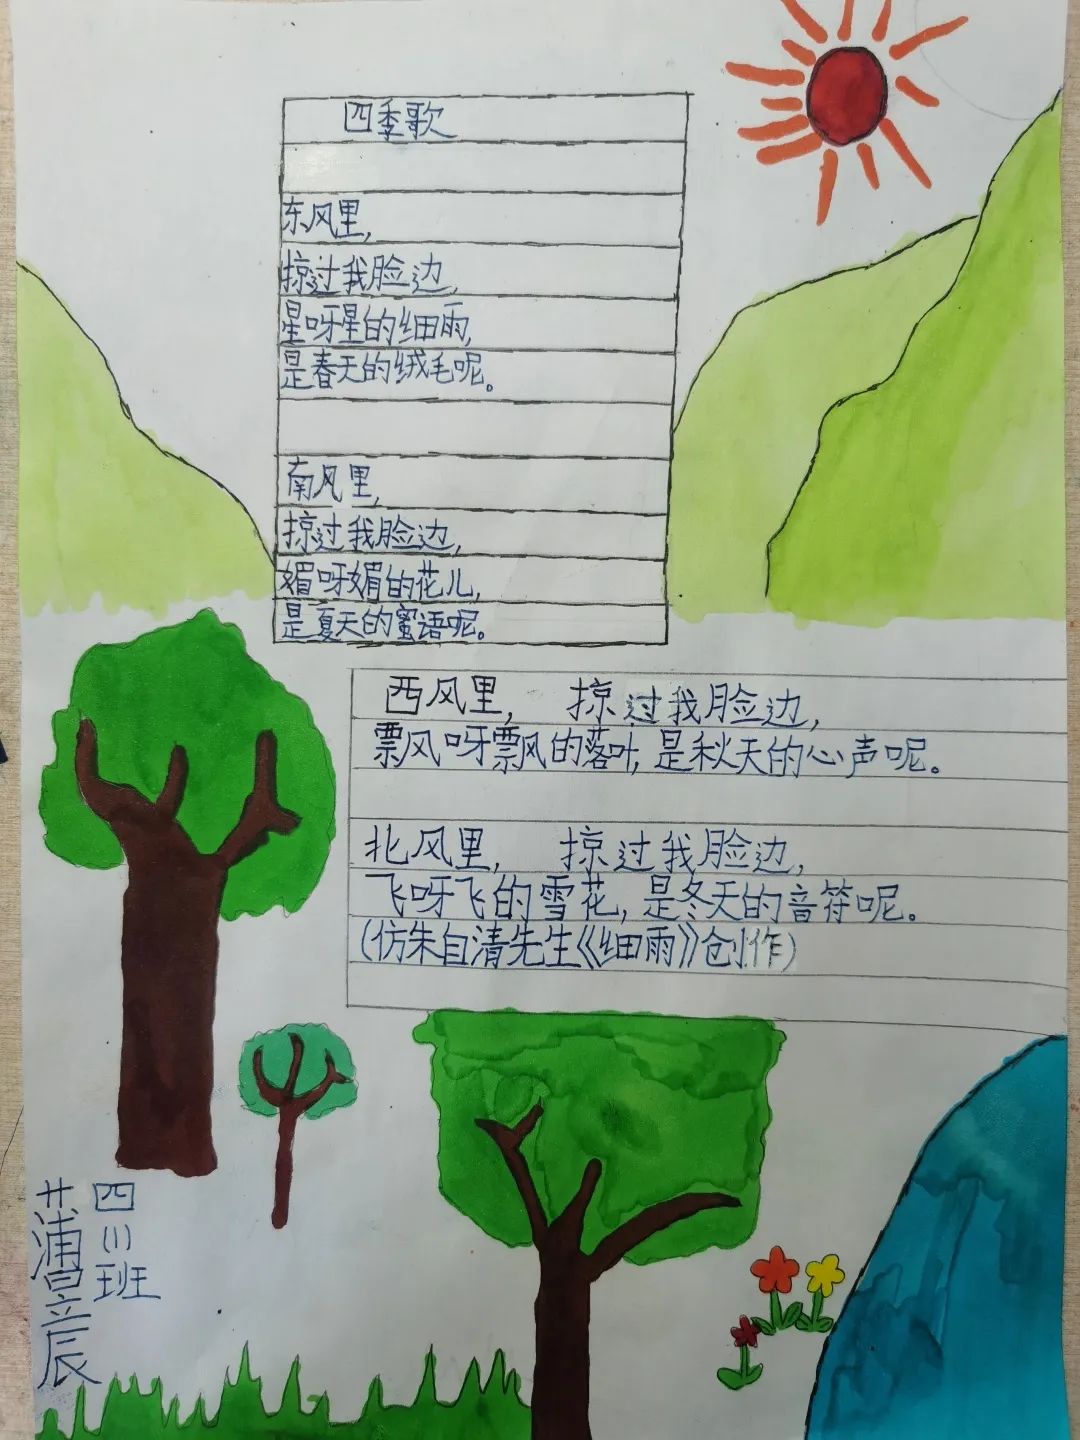 四季歌
东风里,
掠过我脸边,
星呀星的细雨,
是春天的绒毛呢。
南风里,
掠过我脸边,
媚呀媚的花儿,
是夏天的蜜语呢。
西风里, 掠过我脸边,
飘呀飘的落叶,是秋天的心声呢。
北风里, 掠过我脸边,
飞呀飞的雪花,是冬天的音符呢。
(仿朱自清先生《细雨》创作)
四(1)班
蒲昱辰